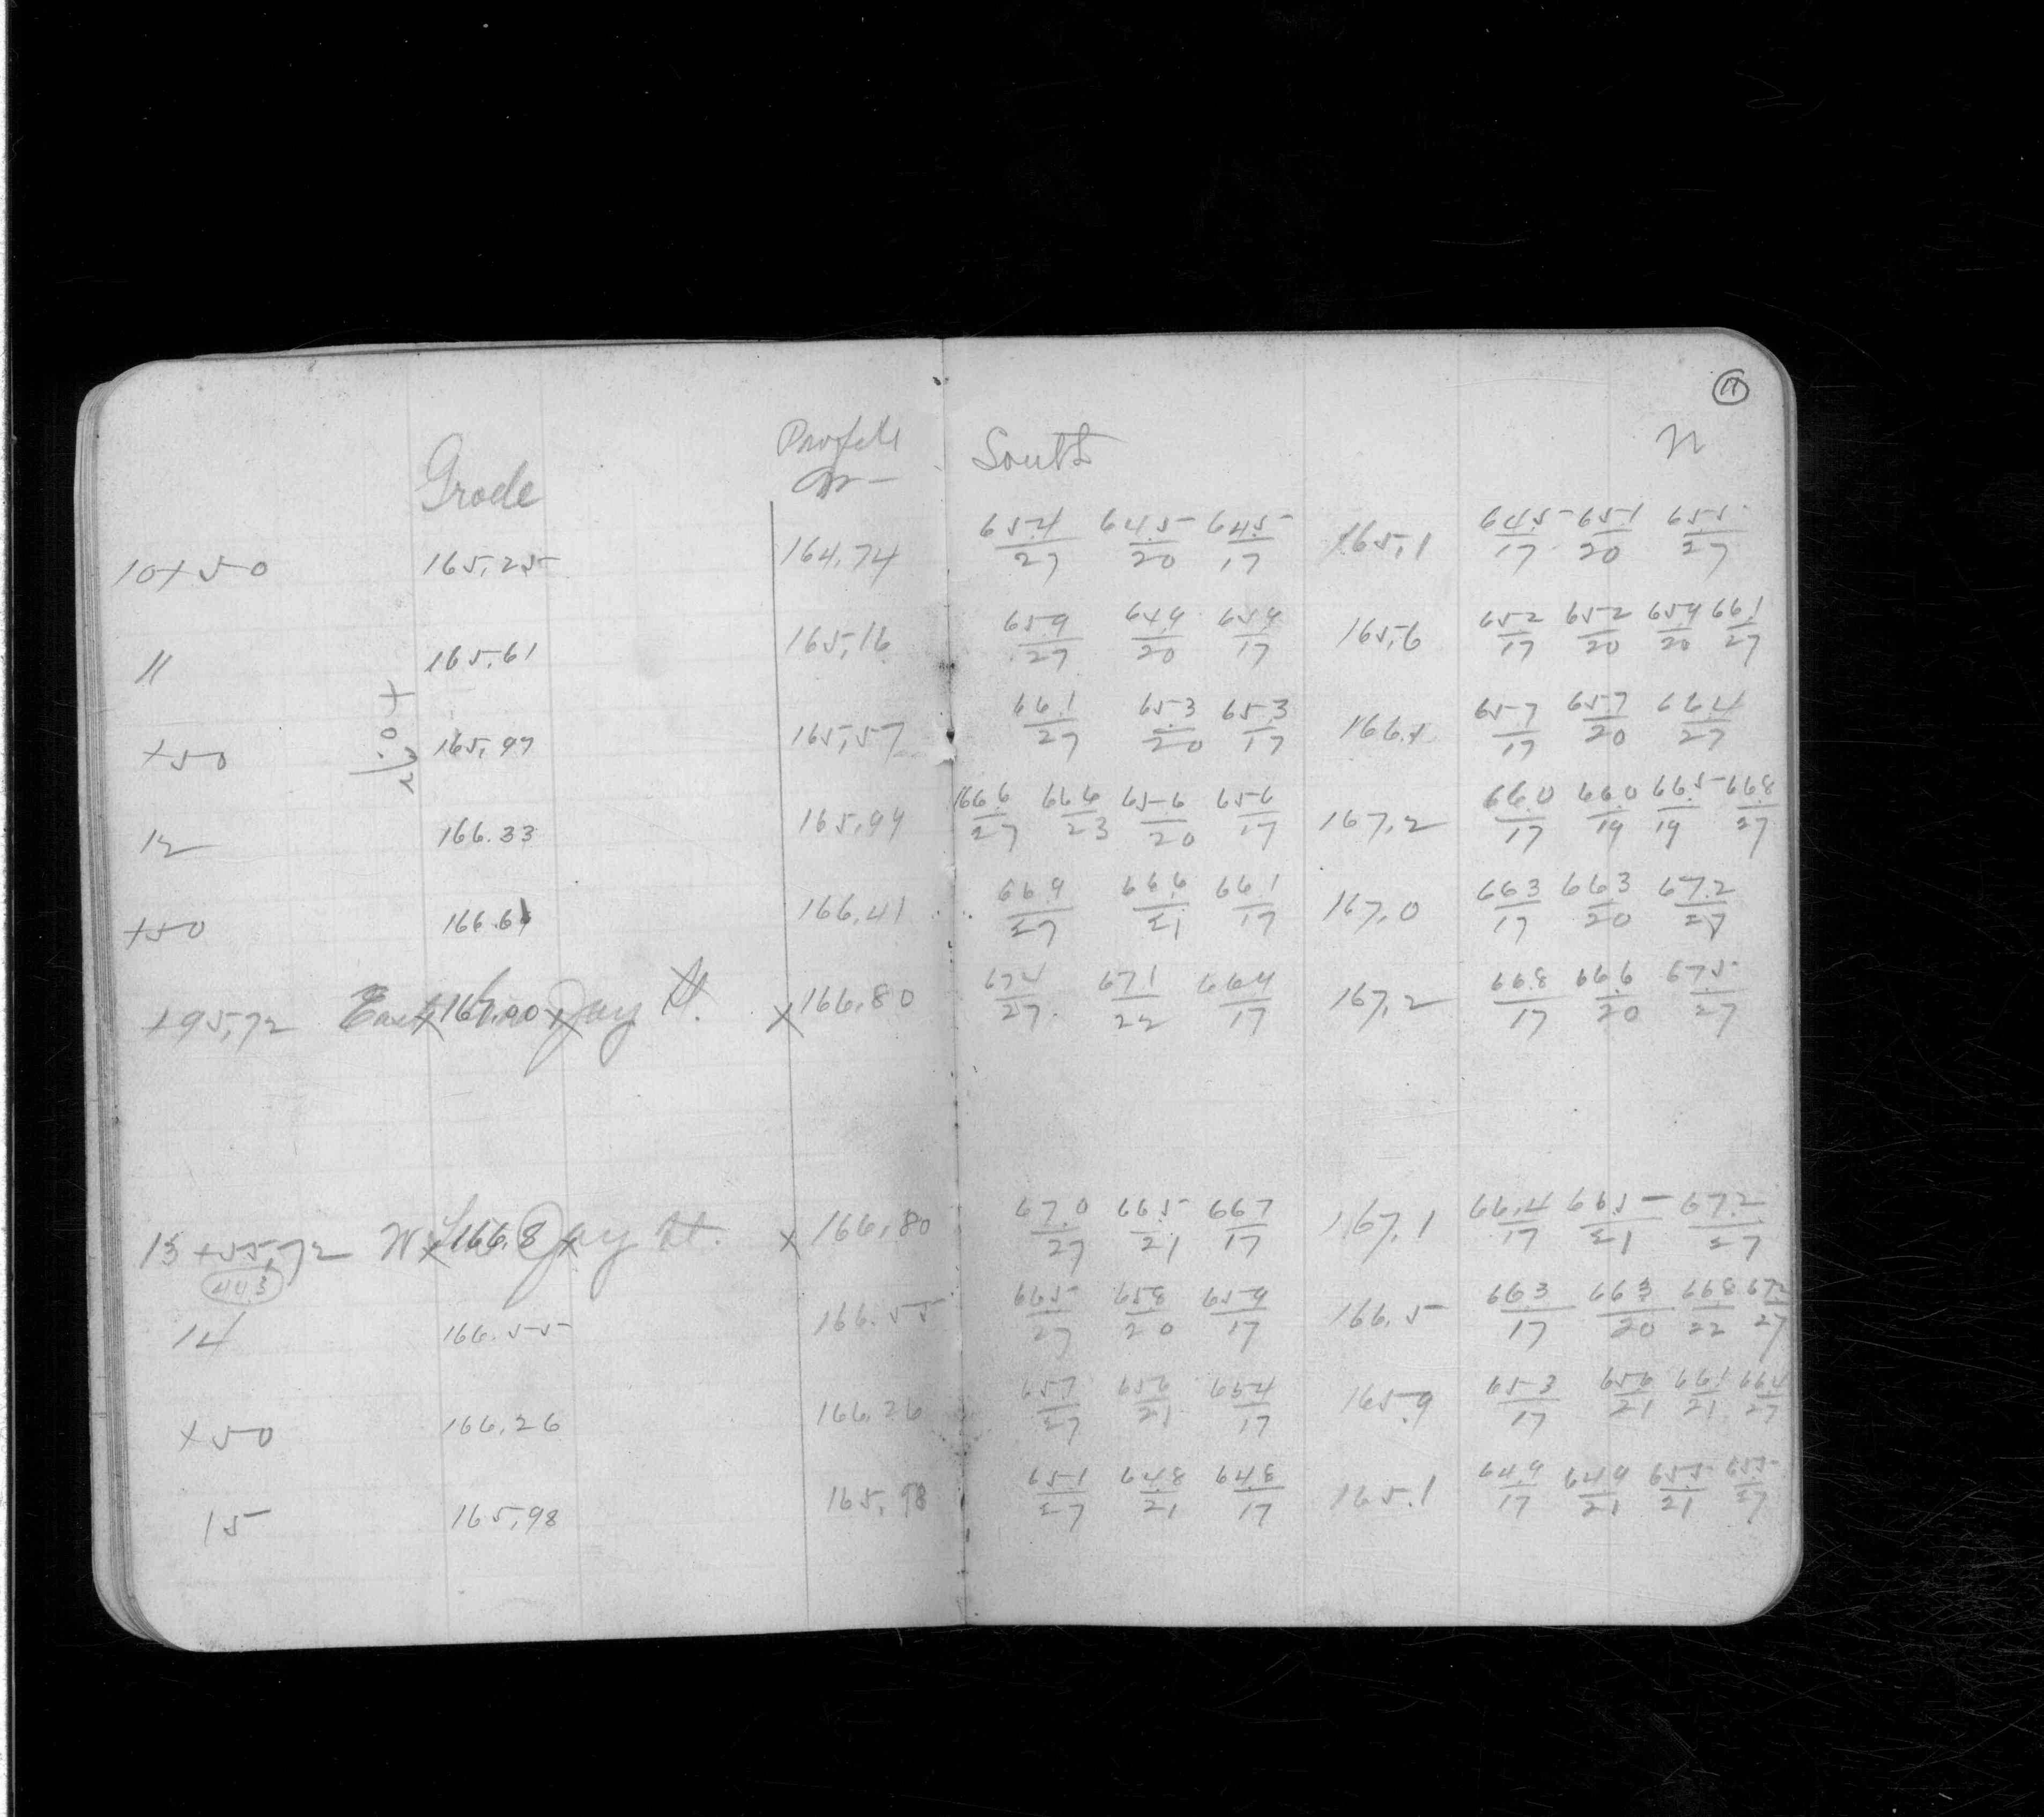 11
Grade Profile South N
10+50 165.25 164.74 65.4/27 64.5/20 64.5/17 165.1 64.5/17 65.1/20 65.5/27
11 165.61 165.16 65.9/27 64.9/20 65.9/17 165.6 65.2/17 65.2/20 65.9/20 66.1/27
+50 165.97 165.57 66.1/27 65.3/20 65.3/17 65.7/17 65.7/20 66.4/27
12 166.33 165.99 166.6/27 66.6/23 65.6/20 65.6/17 167.2 66.0/17 66.0/19 66.5/19 66.8/27
+50 166.61 166.41 66.9/27 66.6/21 66.1/17 167.0 66.3/17 66.3/20 67.2/27
+95.72 East Line Jay St. x 167.00 x x 166.80 67.4/27 67.1/22 66.4/17 167.2 66.8/17 66.6/20 67.5/27
13+55.72 W Line Jay St. x 166.8 x x 166.80 67.0/27 66.5/21 66.7/17 167.1 66.4/17 66.5/21 67.2/27
44.3
14 166.55 166.55 66.5/27 65.8/20 65.9/17 166.5 66.3/17 66.3/20 66.8/22 67.2/27
+50 166.26 166.26 65.7/27 65.6/21 65.4/17 165.9 65.3/17 65.6/21 66.1/21 66.4/27
15 165.98 165.98 65.1/27 64.8/21 64.8/17 165.1 64.9/17 64.9/21 65.5/21 65.5/27